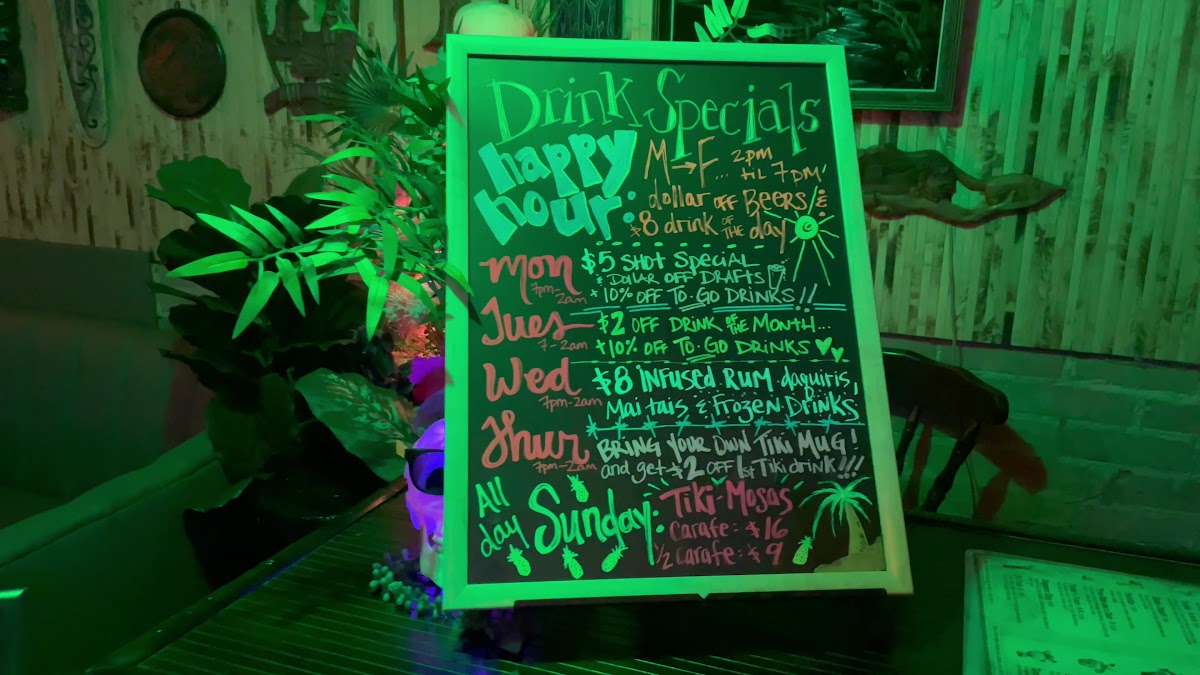 Drink Specials
happy hour:
M→F... 2pm til 7pm!
dollar OFF BEERS &
$8 drink OF THE day
Mon 7pm-2am
$5 SHOT SPECIAL
& DOLLAR OFF DRAFTS
+10% OFF TO·GO DRINKS!!
Tues 7-2am
$2 OFF DRINK OF THE MONTH...
+10% OFF TO·GO DRINKS
Wed 7pm-2am
$8 INFUSED RUM daquiris,
Mai tais & FROZEN DRINKS
Thur 7pm-2am
BRING YOUR OWN TIKI MUG!
and get $2 OFF 1st Tiki drink!!!
All day Sunday:
Tiki-Mosas
carafe: $16
1/2 carafe: $9